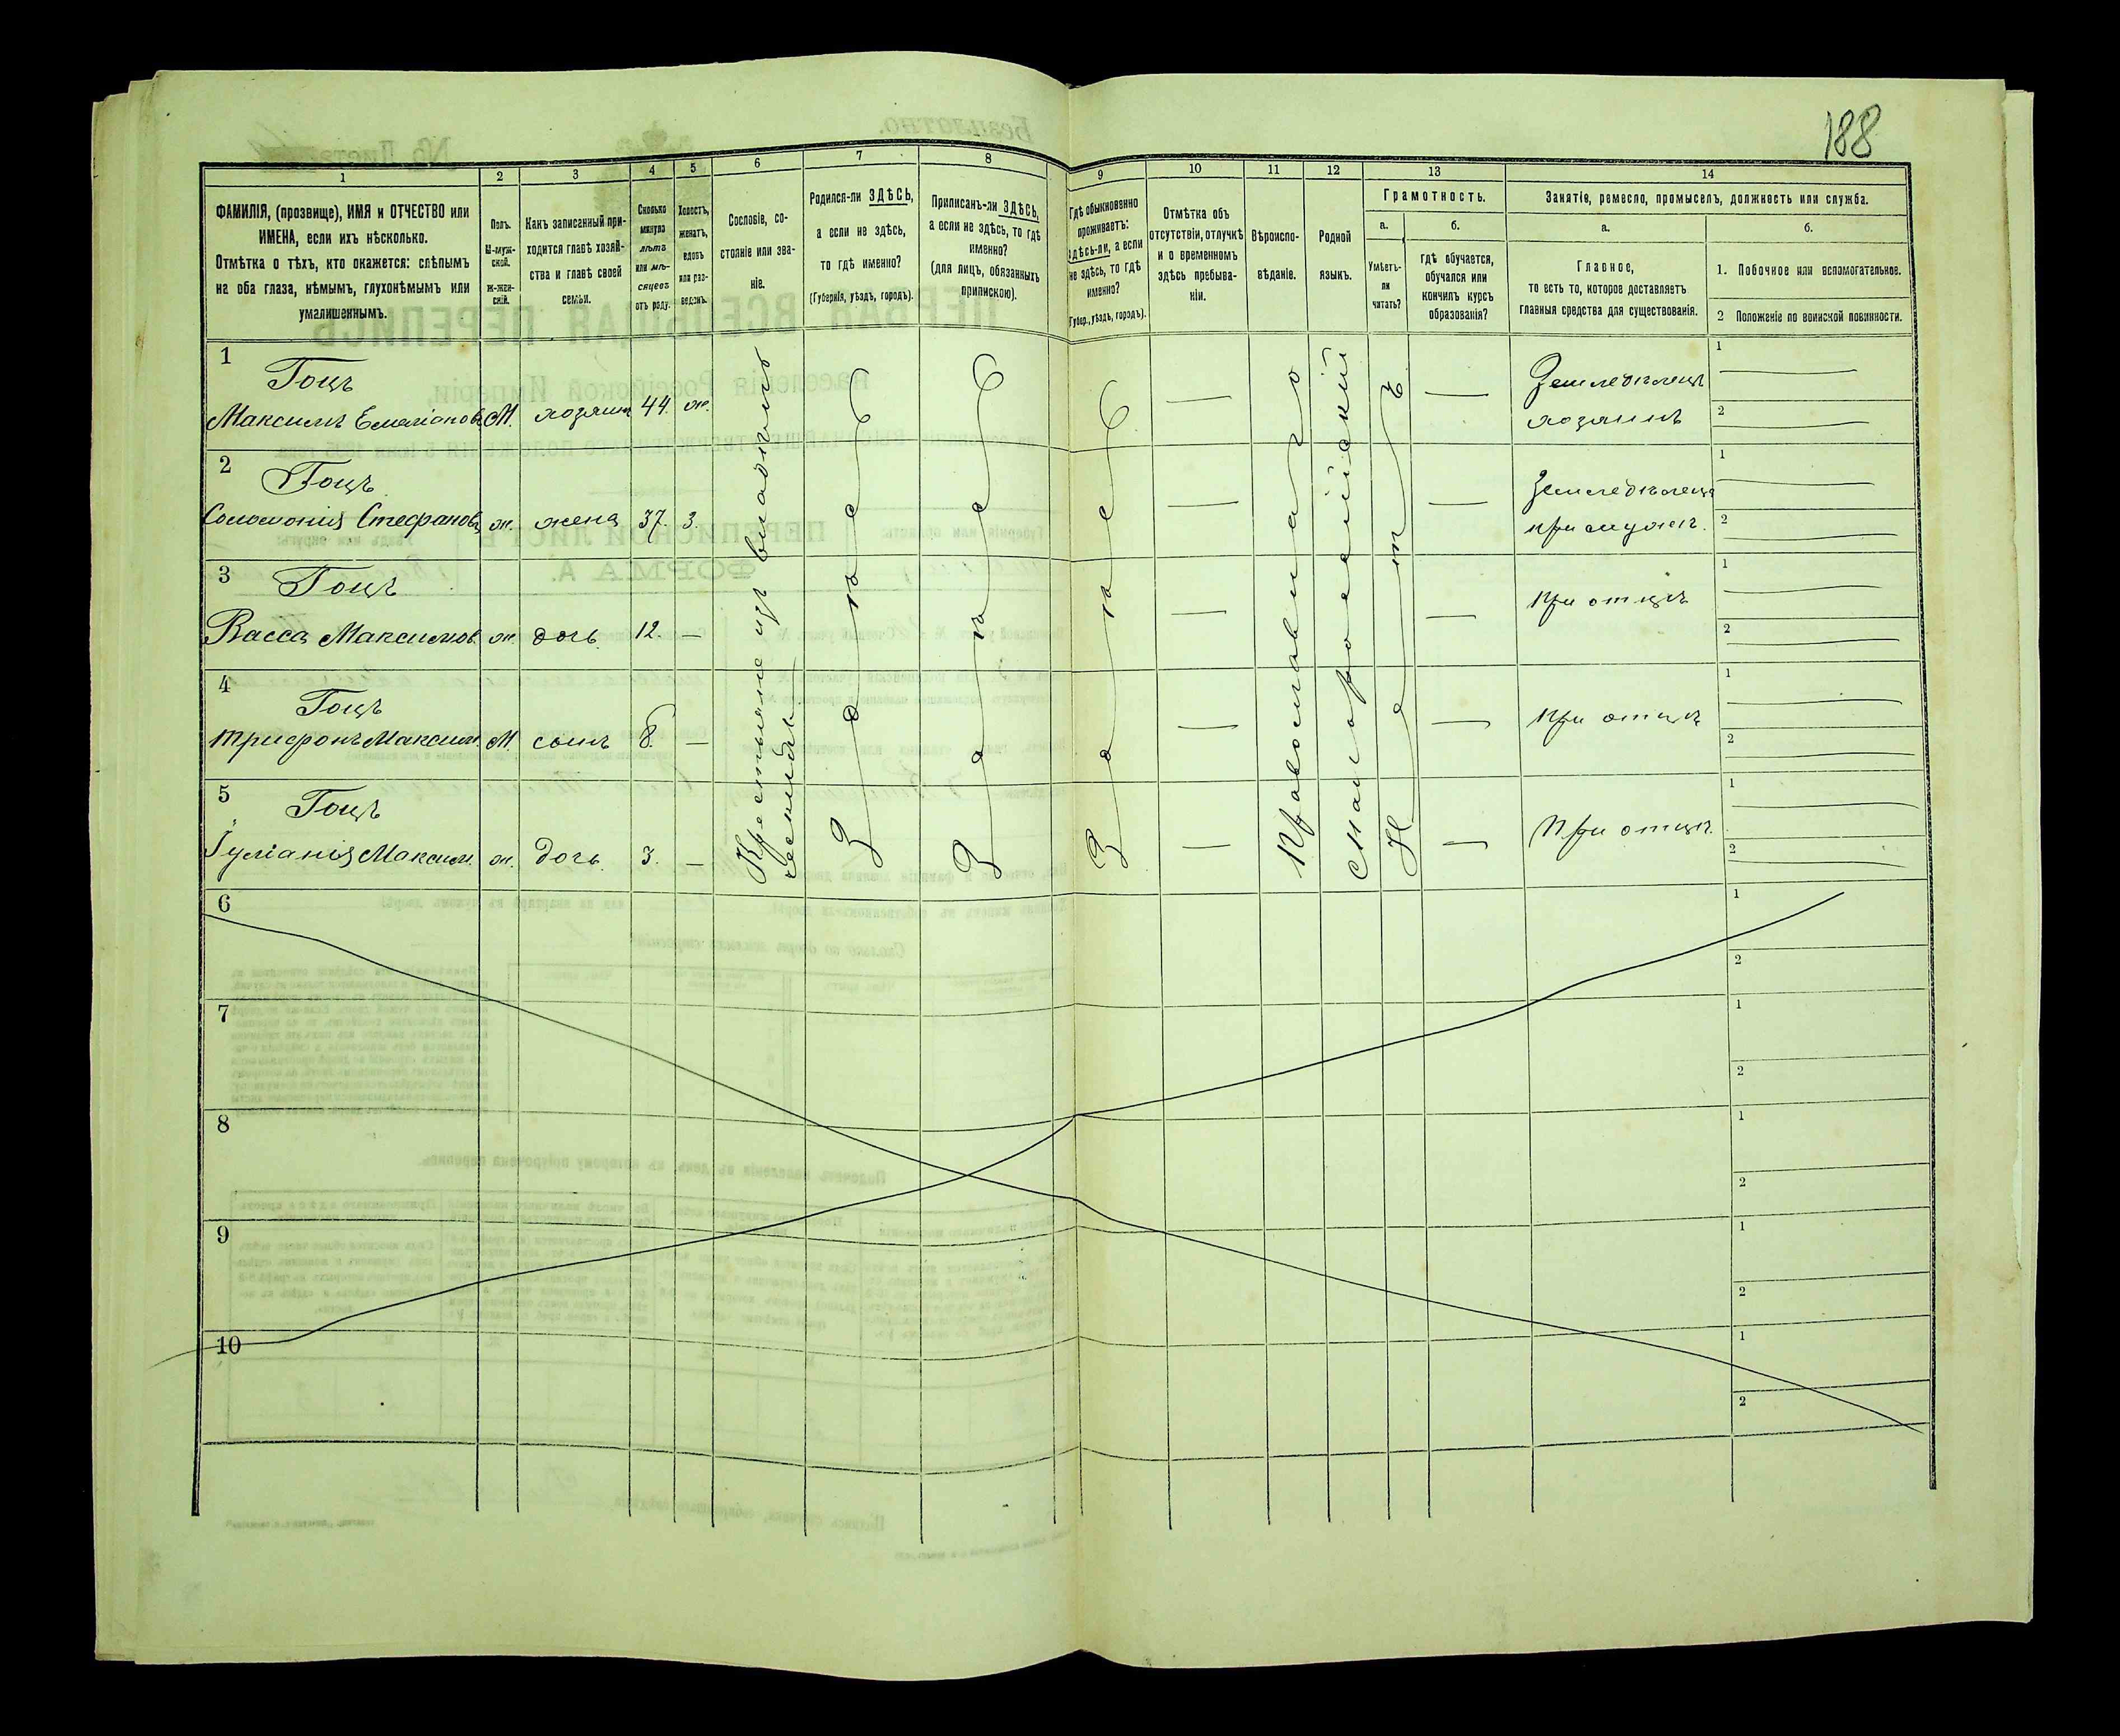 188
1 2 3 4 5 6 7 8 9 10 11 12 13 14
ФАМИЛІЯ, (прозвище), ИМЯ и ОТЧЕСТВО или
ИМЕНА, если ихъ нѣсколько.
Отмѣтка о тѣхъ, кто окажется: слѣпымъ
на оба глаза, нѣмымъ, глухонѣмымъ или
умалишеннымъ.
Полъ.
М-муж-
ской.
Ж-жен-
скій.
Какъ записанный при-
ходится главѣ хозяй-
ства и главѣ своей
семьи.
Сколько
минуло
лѣтъ
или мѣ-
сяцевъ
отъ роду.
Холостъ,
женатъ,
вдовъ
или раз-
веденъ.
Сословіе, со-
стояніе или зва-
ніе.
Родился-ли ЗДѢСЬ,
а если не здѣсь,
то гдѣ именно?
(Губернія, уѣздъ, городъ).
Приписанъ-ли ЗДѢСЬ,
а если не здѣсь, то гдѣ
именно?
(для лицъ, обязанныхъ
припискою).
Гдѣ обыкновенно
проживаетъ:
здѣсь-ли, а если
не здѣсь, то гдѣ
именно?
(Губер., уѣздъ, городъ).
Отмѣтка объ
отсутствіи, отлучкѣ
и о временномъ
здѣсь пребыва-
ніи.
Вѣроиспо-
вѣданіе.
Родной
языкъ.
Грамотность.
а.
Умѣетъ-
ли
читать?
б.
гдѣ обучается,
обучался или
кончилъ курсъ
образованія?
Занятіе, ремесло, промыселъ, должность или служба.
а.
Главное,
то есть то, которое доставляетъ
главныя средства для существованія.
б.
1. Побочное или вспомогательное.
2 Положеніе по воинской повинности.
1 Гоцъ
Максимъ Емеліановъ М. хозяинъ 44. ж. — — Земледѣлецъ
хозяинъ 1 2
2 Гоцъ
Соломонія Стефанов. ж. жена 37. З. — — Земледѣлец
при мужѣ. 1 2
3 Гоцъ
Васса Максимов. ж. дочь. 12. — — — при отцѣ 1 2
4 Гоцъ
Трифонъ Максим. М. сынъ 8. — — — при отцѣ 1 2
5 Гоцъ
Іуліанія Максим. ж. дочь. 3. — — — При отцѣ. 1 2
Крестьяне изъ
Здѣсь
Здѣсь
Здѣсь
Православнаго
Малороссійскій
Нетъ
6 1
2
7 1
2
8 1
2
9 1
2
10 1
2